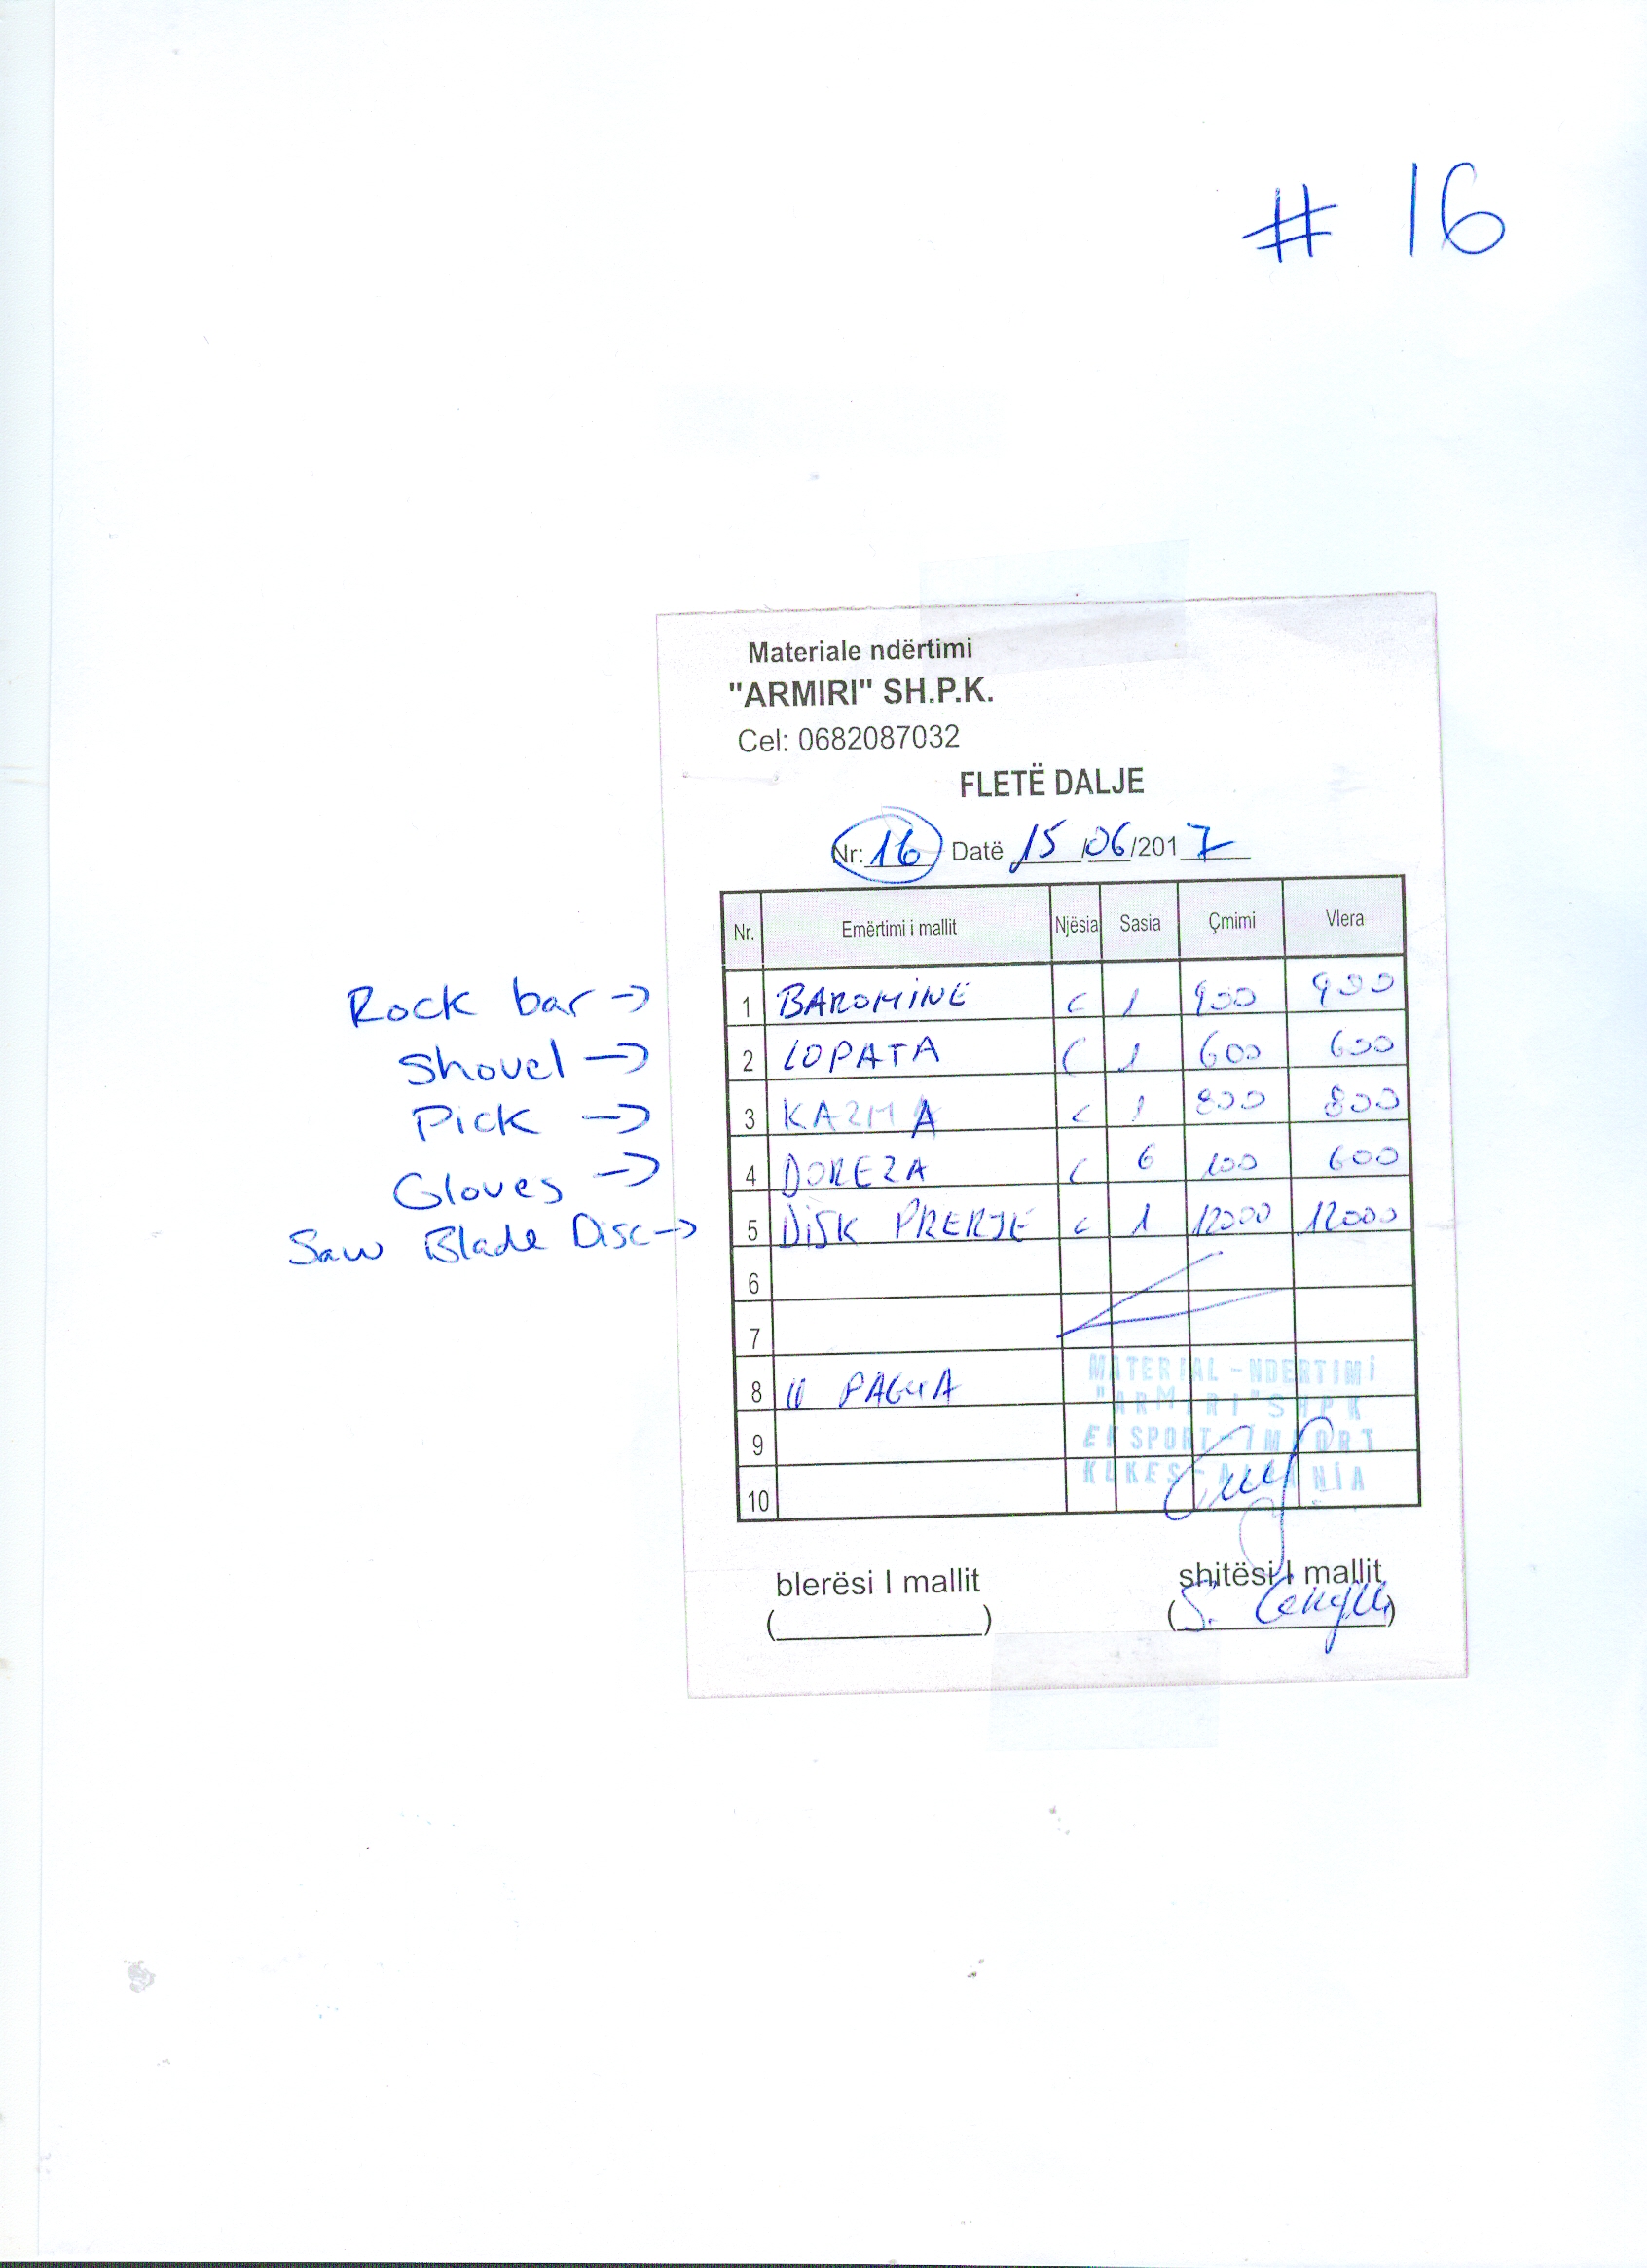 # 16
Materiale ndërtimi
"ARMIRI" SH.P.K.
Cel: 0682087032
FLETË DALJE
Nr: 16 Datë 15/06/2017
Nr. Emërtimi i mallit Njësia Sasia Çmimi Vlera
Rock bar → 1 BAROMINE c 1 900 900
Shovel → 2 LOPATA c 1 600 600
Pick → 3 KAZMA c 1 800 800
Gloves → 4 DOREZA c 6 100 600
Saw Blade Disc → 5 DISK PRERJE c 1 12000 12000
6
7
8 U PAGUA
9
10
MATERIAL-NDERTIMI
"ARMIRI" SHPK
EKSPORT-IMPORT
KUKES-ALBANIA
blerësi I mallit shitësi I mallit
(____) (S.)